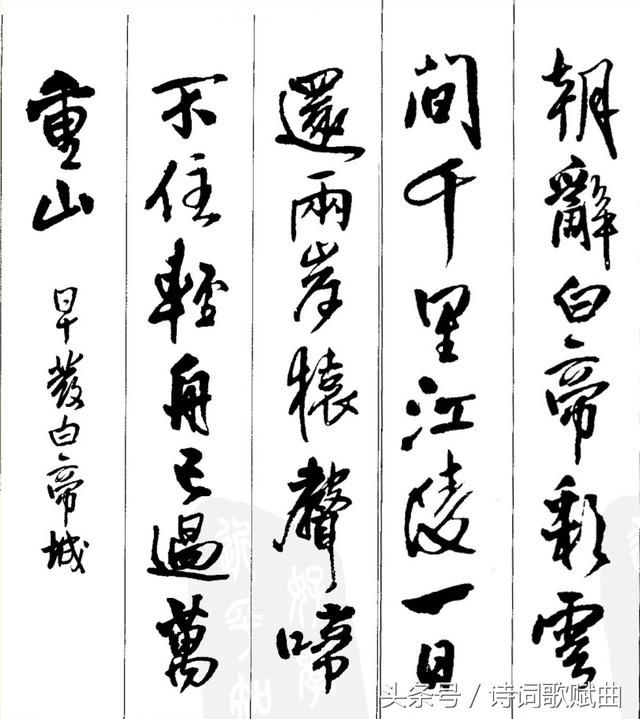 朝辭白帝彩雲
間千里江陵一日
還兩岸猿聲啼
不住輕舟已過萬
重山
早發白帝城
头条号 / 诗词歌赋曲